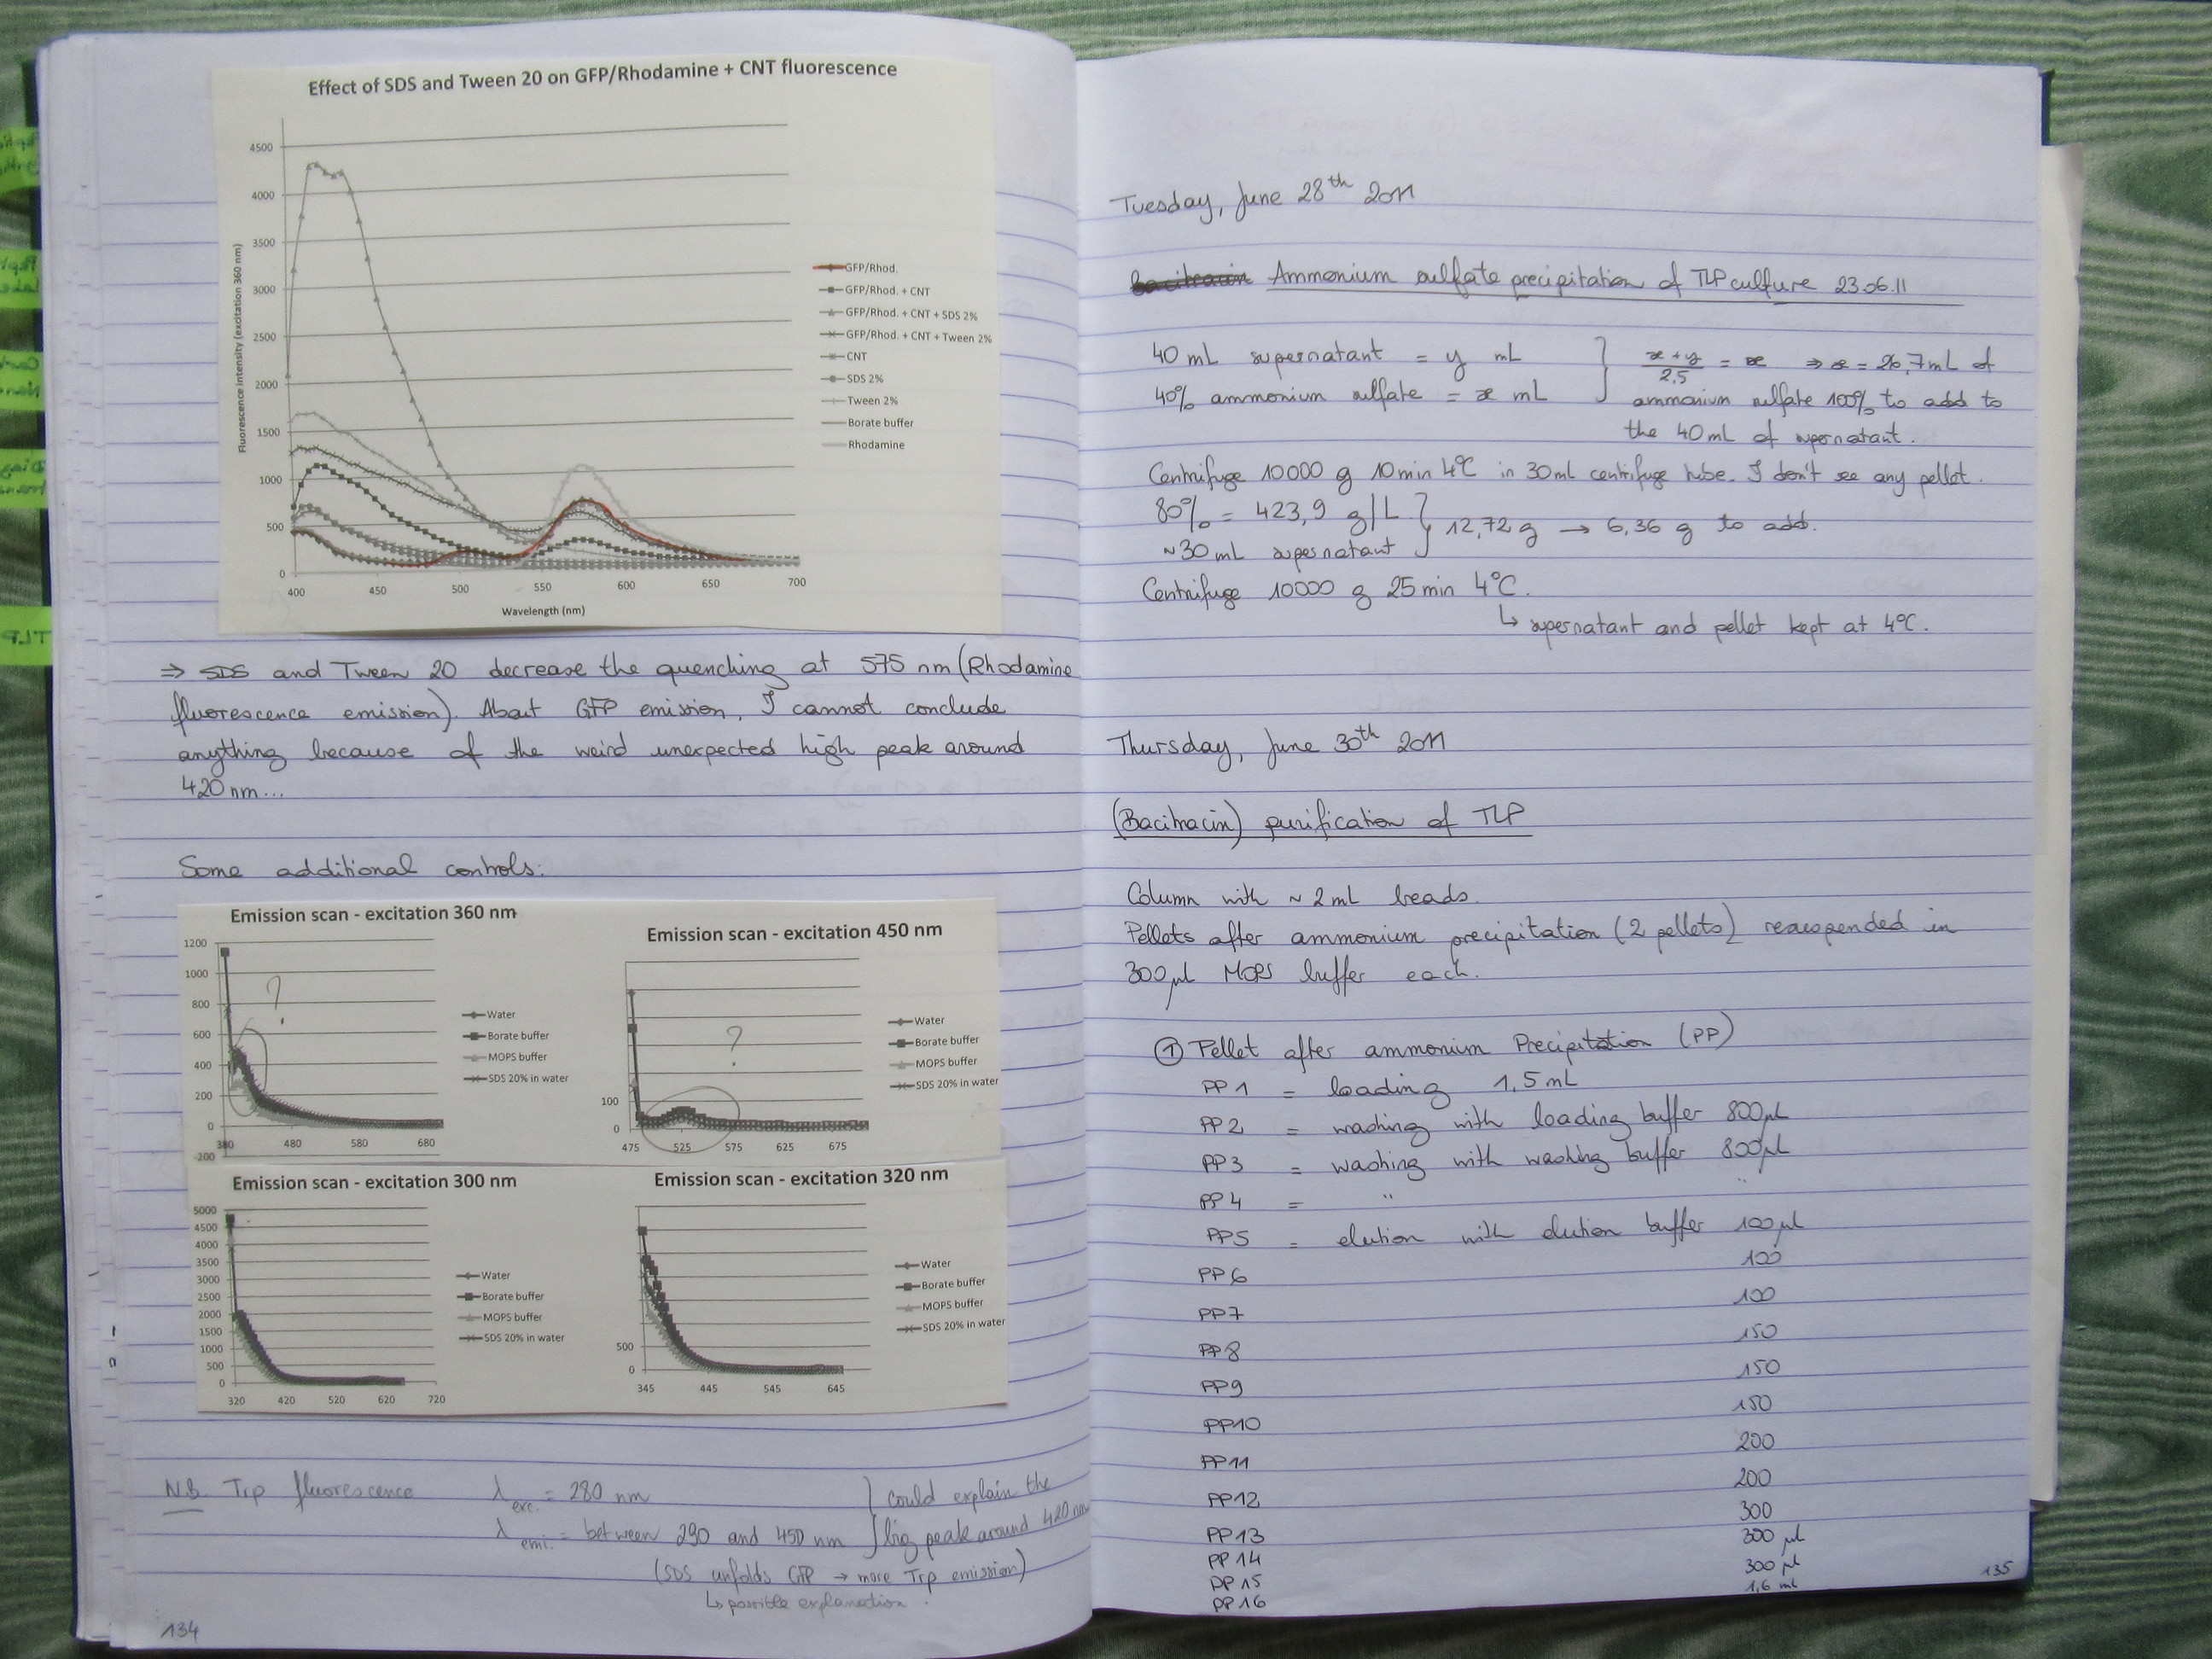 Effect of SDS and Tween 20 on GFP/Rhodamine + CNT fluorescence
Fluorescence intensity (excitation 360 nm)
4500
4000
3500
3000
2500
2000
1500
1000
500
0
400 450 500 550 600 650 700
Wavelength (nm)
GFP/Rhod.
GFP/Rhod. + CNT
GFP/Rhod. + CNT + SDS 2%
GFP/Rhod. + CNT + Tween 2%
CNT
SDS 2%
Tween 2%
Borate buffer
Rhodamine
⇒ SDS and Tween 20 decrease the quenching at 575 nm (Rhodamine
fluorescence emission). About GFP emission, I cannot conclude
anything because of the weird unexpected high peak around
420 nm...
Some additional controls:
Emission scan - excitation 360 nm
1200
1000
800
600
400
200
0
-200
380 480 580 680
?
Water
Borate buffer
MOPS buffer
SDS 20% in water
Emission scan - excitation 450 nm
100
0
475 525 575 625 675
?
Water
Borate buffer
MOPS buffer
SDS 20% in water
Emission scan - excitation 300 nm
5000
4500
4000
3500
3000
2500
2000
1500
1000
500
0
320 420 520 620 720
Water
Borate buffer
MOPS buffer
SDS 20% in water
Emission scan - excitation 320 nm
500
0
345 445 545 645
Water
Borate buffer
MOPS buffer
SDS 20% in water
N.B. Trp fluorescence λ exc. = 280 nm } could explain the
λ emi. = between 290 and 450 nm } big peak around 420 nm
(SDS unfolds GFP → more Trp emission)
↳ possible explanation.
134
Tuesday, June 28th 2011
Bacitracin Ammonium sulfate precipitation of TLP culture 23.06.11
40 mL supernatant = y mL } x + y / 2,5 = x ⇒ x = 26,7 mL of
40% ammonium sulfate = x mL } ammonium sulfate 100% to add to
the 40 mL of supernatant.
Centrifuge 10000 g 10 min 4°C in 30 ml centrifuge tube. I don't see any pellet.
80% = 423,9 g/L } 12,72 g → 6,36 g to add.
~30 mL supernatant }
Centrifuge 10000 g 25 min 4°C.
↳ supernatant and pellet kept at 4°C.
Thursday, June 30th 2011
(Bacitracin) purification of TLP
Column with ~ 2 mL beads.
Pellets after ammonium precipitation (2 pellets) resuspended in
300 µl MOPS buffer each.
① Pellet after ammonium Precipitation (PP)
PP 1 = loading 1,5 mL
PP 2 = washing with loading buffer 800 µL
PP 3 = washing with washing buffer 800 µL
PP 4 = " "
PP5 = elution with elution buffer 100 µl
PP 6 100
PP7 100
PP8 150
PP9 150
PP10 150
PP11 200
PP12 200
PP13 300
PP14 300 µl
PP15 300 µl
PP16 1,6 ml
135
TLP